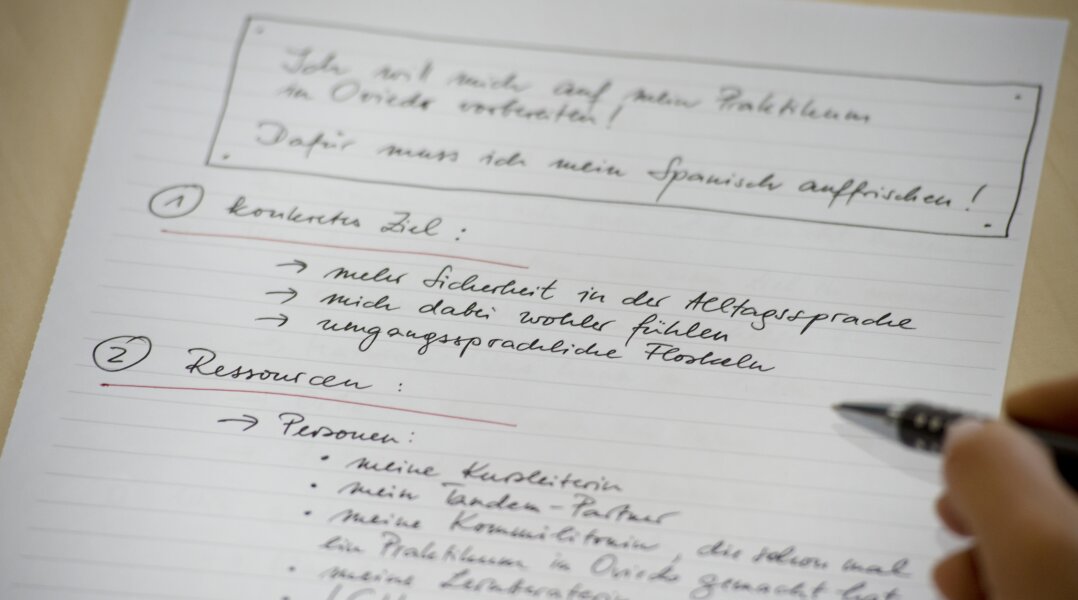 Ich will mich auf mein Praktikum
in Oviedo vorbereiten!
Dafür muss ich mein Spanisch auffrischen!
1 konkretes Ziel:
→ mehr Sicherheit in der Alltagssprache
→ mich dabei wohler fühlen
→ umgangssprachliche Floskeln
2 Ressourcen:
→ Personen:
• meine Kursleiterin
• mein Tandem-Partner
• meine Kommilitonin, die schon mal
ein Praktikum in Oviedo gemacht hat
• meine Lernberaterin